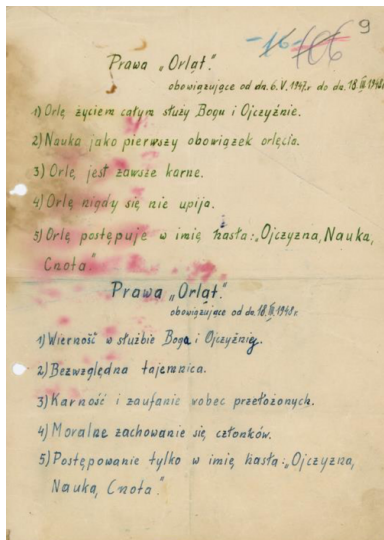 9
-16- 106
Prawa „Orląt."
obowiązujące od dn. 6.V.1947.r do dn. 18.II.1948r.
1) Orlę życiem całym służy Bogu i Ojczyźnie.
2) Nauka jako pierwszy obowiązek orlęcia.
3) Orlę jest zawsze karne.
4) Orlę nigdy się nie upija.
5) Orlę postępuje w imię hasła: „Ojczyzna, Nauka,
Cnota."
Prawa „Orląt."
obowiązujące od dn. 18.II.1948r.
1) Wierność w służbie Boga i Ojczyźnie.
2) Bezwzględna tajemnica.
3) Karność i zaufanie wobec przełożonych.
4) Moralne zachowanie się członków.
5) Postępowanie tylko w imię hasła: „Ojczyzna,
Nauka, Cnota."